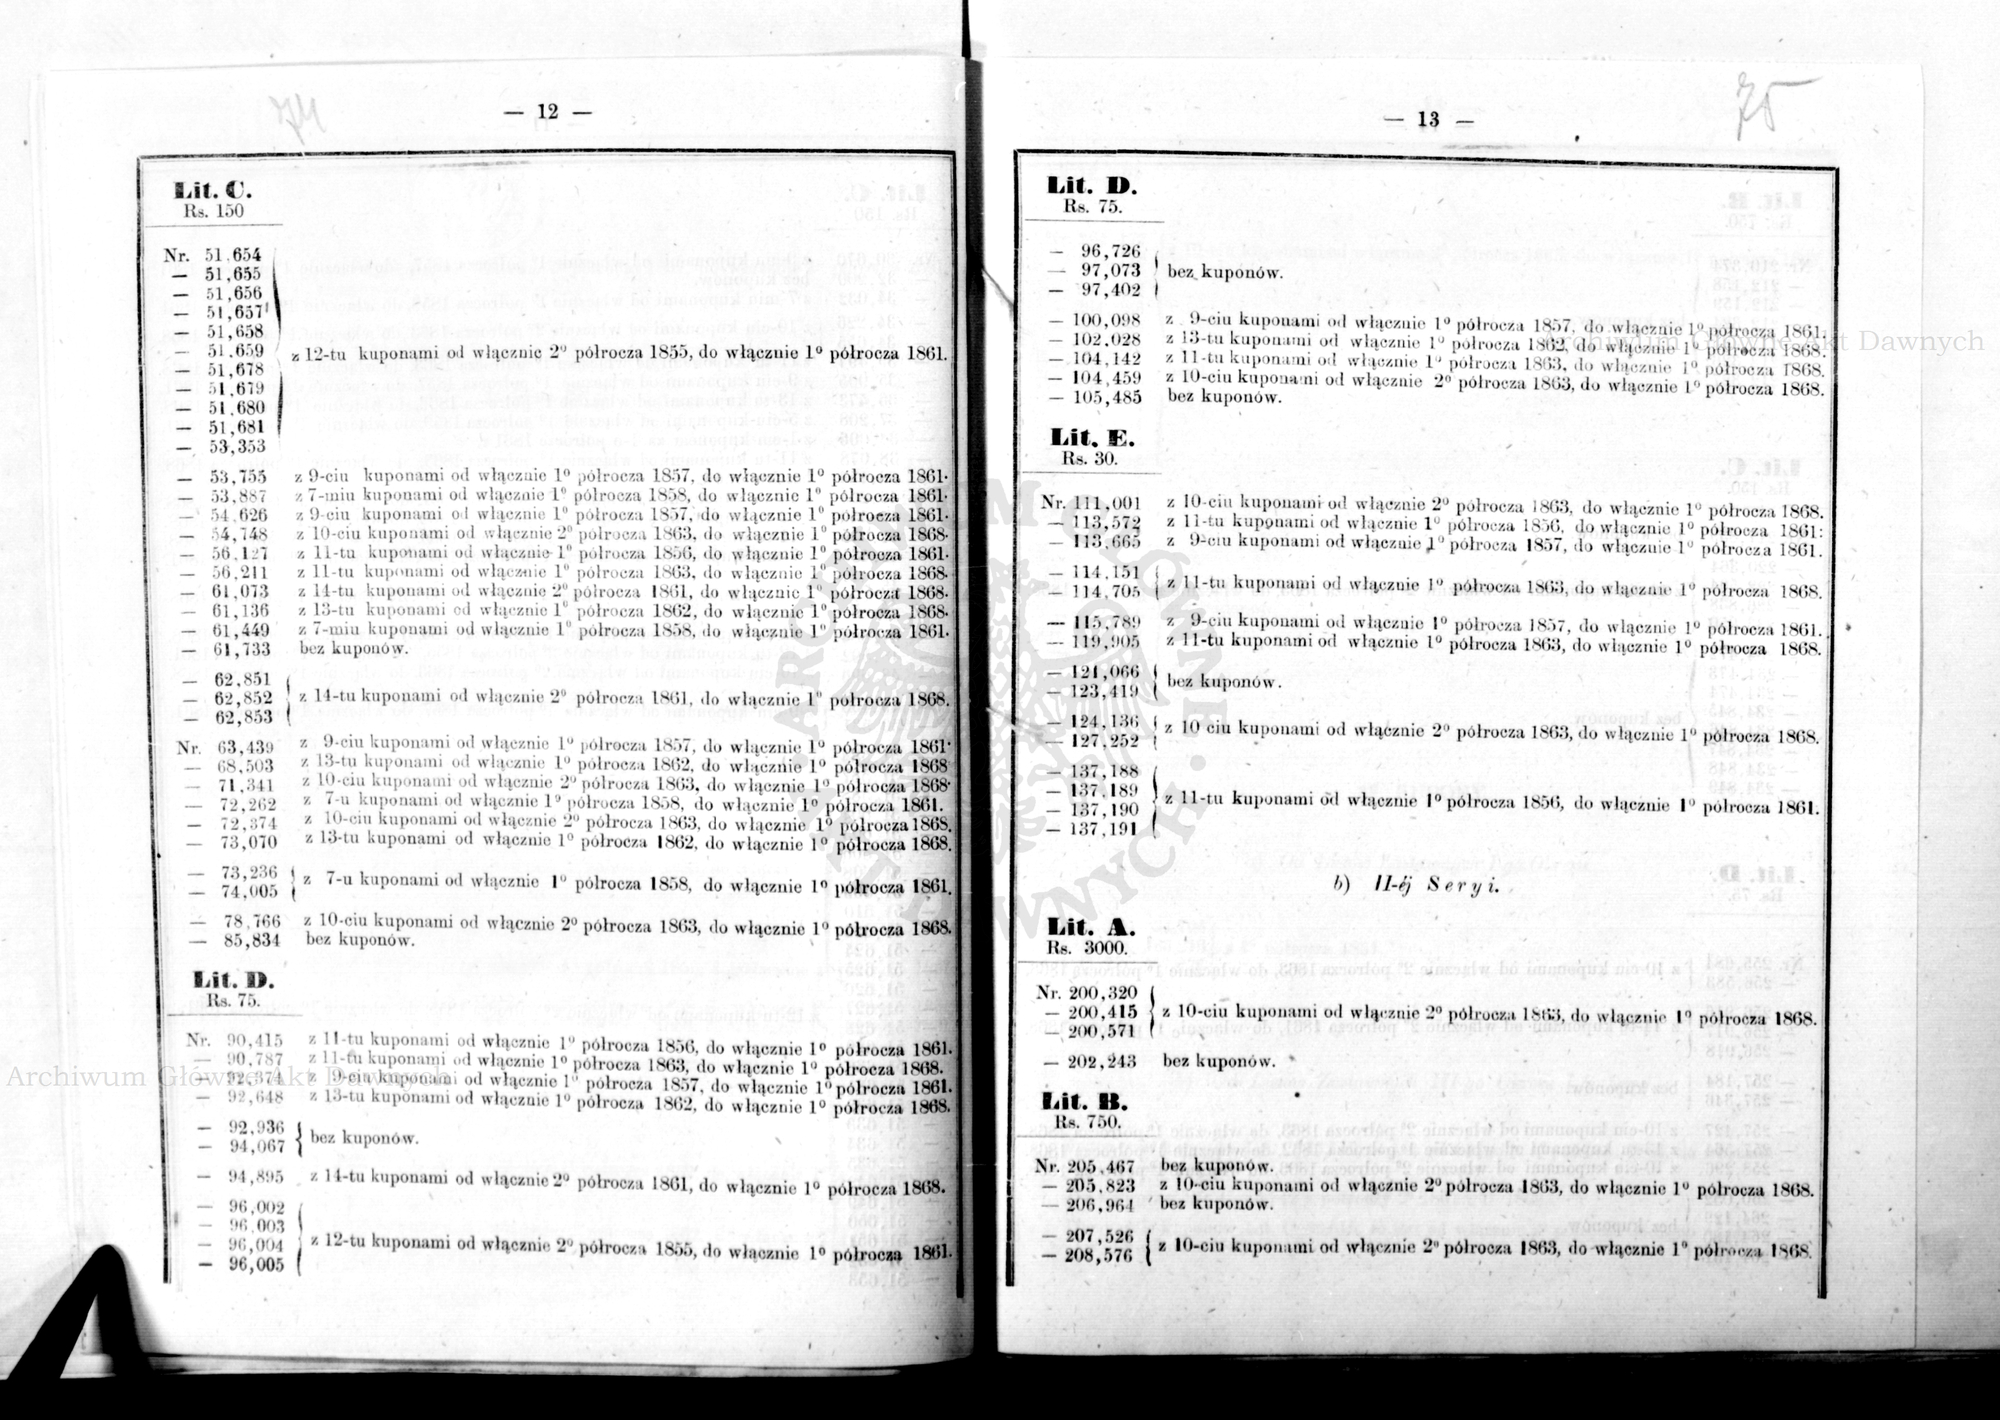 74
— 12 —
Lit. C.
Rs. 150
Nr. 51,654
— 51,655
— 51,656
— 51,657
— 51,658
— 51,659
— 51,678
— 51,679
— 51,680
— 51,681
— 53,353
z 12-tu kuponami od włącznie 2º półrocza 1855, do włącznie 1º półrocza 1861.
— 53,755 z 9-ciu kuponami od włącznie 1º półrocza 1857, do włącznie 1º półrocza 1861.
— 53,887 z 7-miu kuponami od włącznie 1º półrocza 1858, do włącznie 1º półrocza 1861.
— 54,626 z 9-ciu kuponami od włącznie 1º półrocza 1857, do włącznie 1º półrocza 1861.
— 54,748 z 10-ciu kuponami od włącznie 2º półrocza 1863, do włącznie 1º półrocza 1868.
— 56,127 z 11-tu kuponami od włącznie 1º półrocza 1856, do włącznie 1º półrocza 1861.
— 56,211 z 11-tu kuponami od włącznie 1º półrocza 1863, do włącznie 1º półrocza 1868.
— 61,073 z 14-tu kuponami od włącznie 2º półrocza 1861, do włącznie 1º półrocza 1868.
— 61,136 z 13-tu kuponami od włącznie 1º półrocza 1862, do włącznie 1º półrocza 1868.
— 61,449 z 7-miu kuponami od włącznie 1º półrocza 1858, do włącznie 1º półrocza 1861.
— 61,733 bez kuponów.
— 62,851
— 62,852
— 62,853
z 14-tu kuponami od włącznie 2º półrocza 1861, do włącznie 1º półrocza 1868.
Nr. 63,439 z 9-ciu kuponami od włącznie 1º półrocza 1857, do włącznie 1º półrocza 1861.
— 68,503 z 13-tu kuponami od włącznie 1º półrocza 1862, do włącznie 1º półrocza 1868
— 71,341 z 10-ciu kuponami od włącznie 2º półrocza 1863, do włącznie 1º półrocza 1868.
— 72,262 z 7-u kuponami od włącznie 1º półrocza 1858, do włącznie 1º półrocza 1861.
— 72,374 z 10-ciu kuponami od włącznie 2º półrocza 1863, do włącznie 1º półrocza 1868.
— 73,070 z 13-tu kuponami od włącznie 1º półrocza 1862, do włącznie 1º półrocza 1868.
— 73,236
— 74,005
z 7-u kuponami od włącznie 1º półrocza 1858, do włącznie 1º półrocza 1861.
— 78,766 z 10-ciu kuponami od włącznie 2º półrocza 1863, do włącznie 1º półrocza 1868.
— 85,834 bez kuponów.
Lit. D.
Rs. 75.
Nr. 90,415 z 11-tu kuponami od włącznie 1º półrocza 1856, do włącznie 1º półrocza 1861.
— 90,787 z 11-tu kuponami od włącznie 1º półrocza 1863, do włącznie 1º półrocza 1868.
— 92,374 z 9-ciu kuponami od włącznie 1º półrocza 1857, do włącznie 1º półrocza 1861.
— 92,648 z 13-tu kuponami od włącznie 1º półrocza 1862, do włącznie 1º półrocza 1868.
— 92,936
— 94,067
bez kuponów.
— 94,895 z 14-tu kuponami od włącznie 2º półrocza 1861, do włącznie 1º półrocza 1868.
— 96,002
— 96,003
— 96,004
— 96,005
z 12-tu kuponami od włącznie 2º półrocza 1855, do włącznie 1º półrocza 1861.
Archiwum Główne Akt Dawnych
75
— 13 —
Lit. D.
Rs. 75.
— 96,726
— 97,073
— 97,402
bez kuponów.
— 100,098 z 9-ciu kuponami od włącznie 1º półrocza 1857, do włącznie 1º półrocza 1861.
— 102,028 z 13-tu kuponami od włącznie 1º półrocza 1862, do włącznie 1º półrocza 1868.
— 104,142 z 11-tu kuponami od włącznie 1º półrocza 1863, do włącznie 1º półrocza 1868.
— 104,459 z 10-ciu kuponami od włącznie 2º półrocza 1863, do włącznie 1º półrocza 1868.
— 105,485 bez kuponów.
Lit. E.
Rs. 30.
Nr. 111,001 z 10-ciu kuponami od włącznie 2º półrocza 1863, do włącznie 1º półrocza 1868.
— 113,572 z 11-tu kuponami od włącznie 1º półrocza 1856, do włącznie 1º półrocza 1861.
— 113,665 z 9-ciu kuponami od włącznie 1º półrocza 1857, do włącznie 1º półrocza 1861.
— 114,151
— 114,705
z 11-tu kuponami od włącznie 1º półrocza 1863, do włącznie 1º półrocza 1868.
— 115,789 z 9-ciu kuponami od włącznie 1º półrocza 1857, do włącznie 1º półrocza 1861.
— 119,905 z 11-tu kuponami od włącznie 1º półrocza 1863, do włącznie 1º półrocza 1868.
— 121,066
— 123,419
bez kuponów.
— 124,136
— 127,252
z 10 ciu kuponami od włącznie 2º półrocza 1863, do włącznie 1º półrocza 1868.
— 137,188
— 137,189
— 137,190
— 137,191
z 11-tu kuponami od włącznie 1º półrocza 1856, do włącznie 1º półrocza 1861.
b) II-éj Seryi.
Lit. A.
Rs. 3000.
Nr. 200,320
— 200,415
— 200,571
z 10-ciu kuponami od włącznie 2º półrocza 1863, do włącznie 1º półrocza 1868.
— 202,243 bez kuponów.
Lit. B.
Rs. 750.
Nr. 205,467 bez kuponów.
— 205,823 z 10-ciu kuponami od włącznie 2º półrocza 1863, do włącznie 1º półrocza 1868.
— 206,964 bez kuponów.
— 207,526
— 208,576
z 10-ciu kuponami od włącznie 2º półrocza 1863, do włącznie 1º półrocza 1868.
Archiwum Główne Akt Dawnych